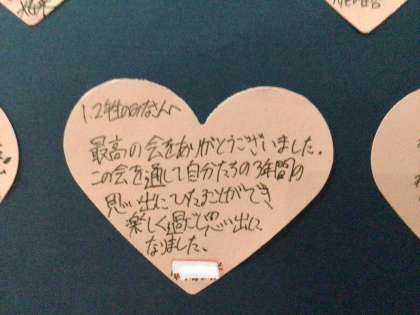 1.2年生のみなさんへ
最高の会をありがとうございました。
この会を通して自分たちの3年間の
思い出にひたることができ
楽しく過ごし思い出に
なりました。